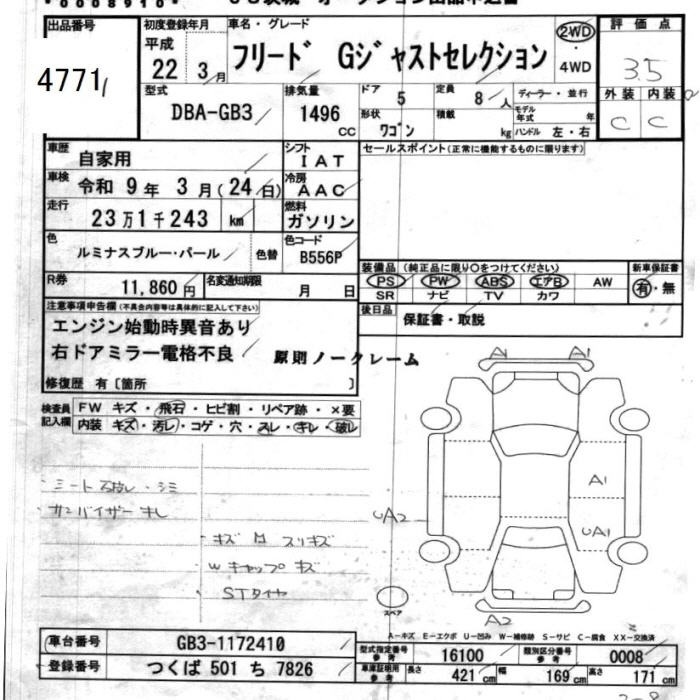 出品番号
4771
初度登録年月
平成
22 3月
車名・グレード
フリード Gジャストセレクション
2WD
・
4WD
評価点
3.5
外装 内装
C C
型式
DBA-GB3
排気量
1496
CC
ドア
5
定員
8 人
形状
ワゴン
積載
kg
ディーラー・並行
モデル年式 年
ハンドル 左・右
車歴
自家用
シフト
IAT
セールスポイント(正常に機能するものに限ります)
車検
令和 9年 3月(24日)
冷房
AAC
走行
23万1千243 km
燃料
ガソリン
色
ルミナスブルー・パール
色替
色コード
B556P
R券
11,860円
名変通知期限
月 日
装備品 (純正品に限り○をつけてください)
PS PW ABS エアB AW
SR ナビ TV カワ
新車保証書
有・無
後日品
保証書・取説
注意事項申告欄(不具合内容等は具体的に記入して下さい)
エンジン始動時異音あり
右ドアミラー電格不良
原則ノークレーム
修復歴 有〔箇所 〕
検査員記入欄
FW キズ・飛石・ヒビ割・リペア跡・×要
内装 キズ・汚レ・コゲ・穴・スレ・キレ・破レ
シート破レ・シミ
サンバイザー キレ
キズ M スリキズ
Wキャップ キズ
STタイヤ
A1
A1
A1
UA1
UA2
A2
スペア
A-キズ E-エクボ U-凹み W-補修跡 S-サビ C-腐食 XX-交換済
車台番号
GB3-1172410
登録番号
つくば 501 ち 7826
型式指定番号
参考
16100
類別区分番号
参考
0008
車庫証明用
参考
長さ
421 cm
幅
169 cm
高さ
171 cm